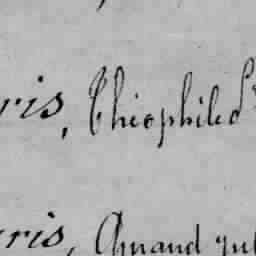 ris, Théophile d
ris, Armand jul